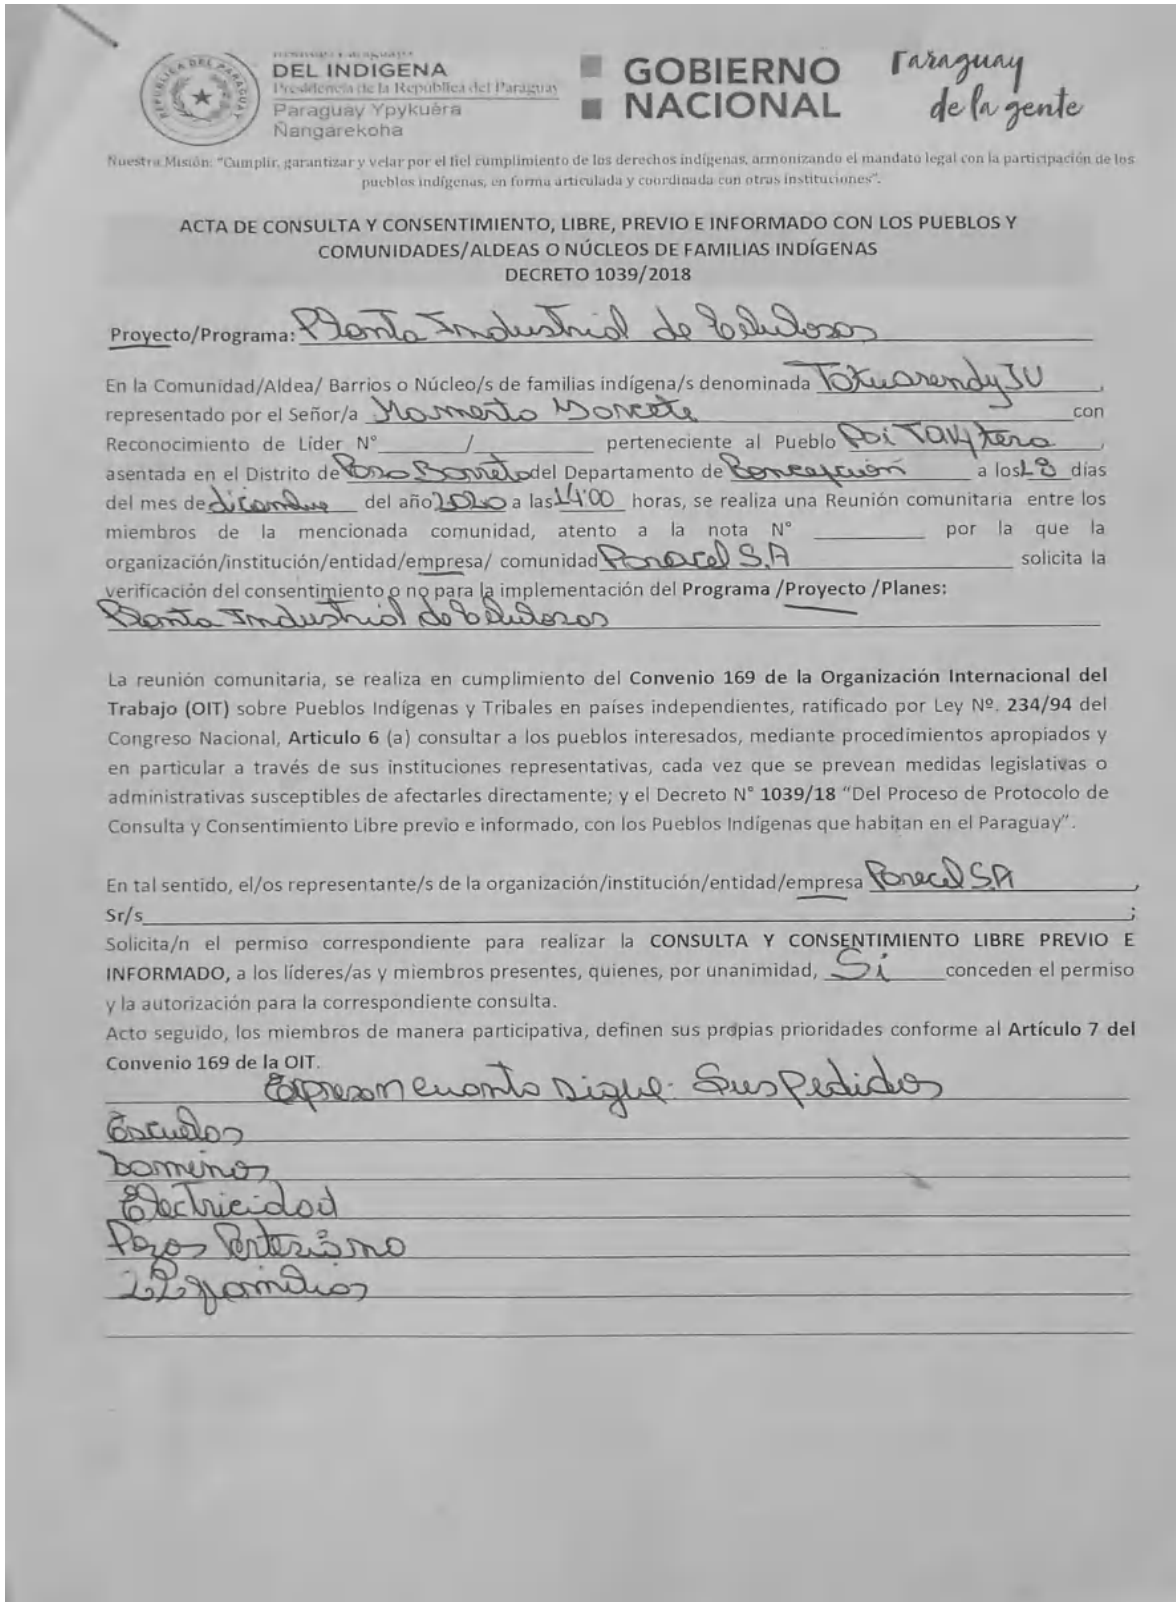 DEL INDIGENA
Presidencia de la República del Paraguay
Paraguay Ypykuéra
Ñangarekoha
REPUBLICA DEL PARAGUAY
GOBIERNO
NACIONAL
Paraguay
de la gente
Nuestra Misión: "Cumplir, garantizar y velar por el fiel cumplimiento de los derechos indígenas, armonizando el mandato legal con la participación de los
pueblos indígenas, en forma articulada y coordinada con otras instituciones".
ACTA DE CONSULTA Y CONSENTIMIENTO, LIBRE, PREVIO E INFORMADO CON LOS PUEBLOS Y
COMUNIDADES/ALDEAS O NÚCLEOS DE FAMILIAS INDÍGENAS
DECRETO 1039/2018
Proyecto/Programa: Planta Industrial de Celulosas
En la Comunidad/Aldea/ Barrios o Núcleo/s de familias indígena/s denominada Takuarendy JU,
representado por el Señor/a Mamerto con
Reconocimiento de Líder N° / perteneciente al Pueblo Pai Tavytera,
asentada en el Distrito de Paso Barreto del Departamento de Concepción a los 18 días
del mes de diciembre del año 2020 a las 14:00 horas, se realiza una Reunión comunitaria entre los
miembros de la mencionada comunidad, atento a la nota N° por la que la
organización/institución/entidad/empresa/ comunidad Paracel S.A solicita la
verificación del consentimiento o no para la implementación del Programa /Proyecto /Planes:
Planta Industrial de Celulosas
La reunión comunitaria, se realiza en cumplimiento del Convenio 169 de la Organización Internacional del
Trabajo (OIT) sobre Pueblos Indígenas y Tribales en países independientes, ratificado por Ley Nº. 234/94 del
Congreso Nacional, Articulo 6 (a) consultar a los pueblos interesados, mediante procedimientos apropiados y
en particular a través de sus instituciones representativas, cada vez que se prevean medidas legislativas o
administrativas susceptibles de afectarles directamente; y el Decreto N° 1039/18 "Del Proceso de Protocolo de
Consulta y Consentimiento Libre previo e informado, con los Pueblos Indígenas que habitan en el Paraguay".
En tal sentido, el/os representante/s de la organización/institución/entidad/empresa Paracel S.A,
Sr/s ;
Solicita/n el permiso correspondiente para realizar la CONSULTA Y CONSENTIMIENTO LIBRE PREVIO E
INFORMADO, a los líderes/as y miembros presentes, quienes, por unanimidad, Si conceden el permiso
y la autorización para la correspondiente consulta.
Acto seguido, los miembros de manera participativa, definen sus propias prioridades conforme al Artículo 7 del
Convenio 169 de la OIT.
Expresan cuanto sigue: Sus Pedidos
Escuelas
Caminos
Electricidad
Pozos Artesiano
22 familias